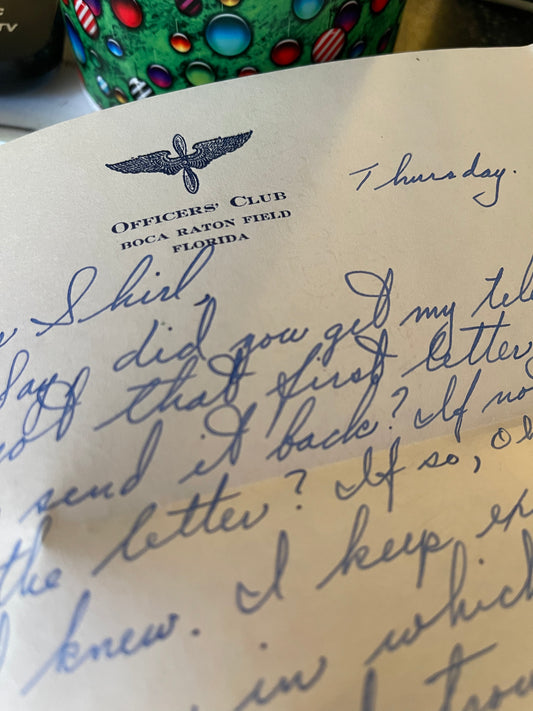 TV
OFFICERS' CLUB
BOCA RATON FIELD
FLORIDA
Thursday.
Shirl,
did you get my tele
not that first letter
send it back? If no
the letter? If so,
knew. I keep
in which